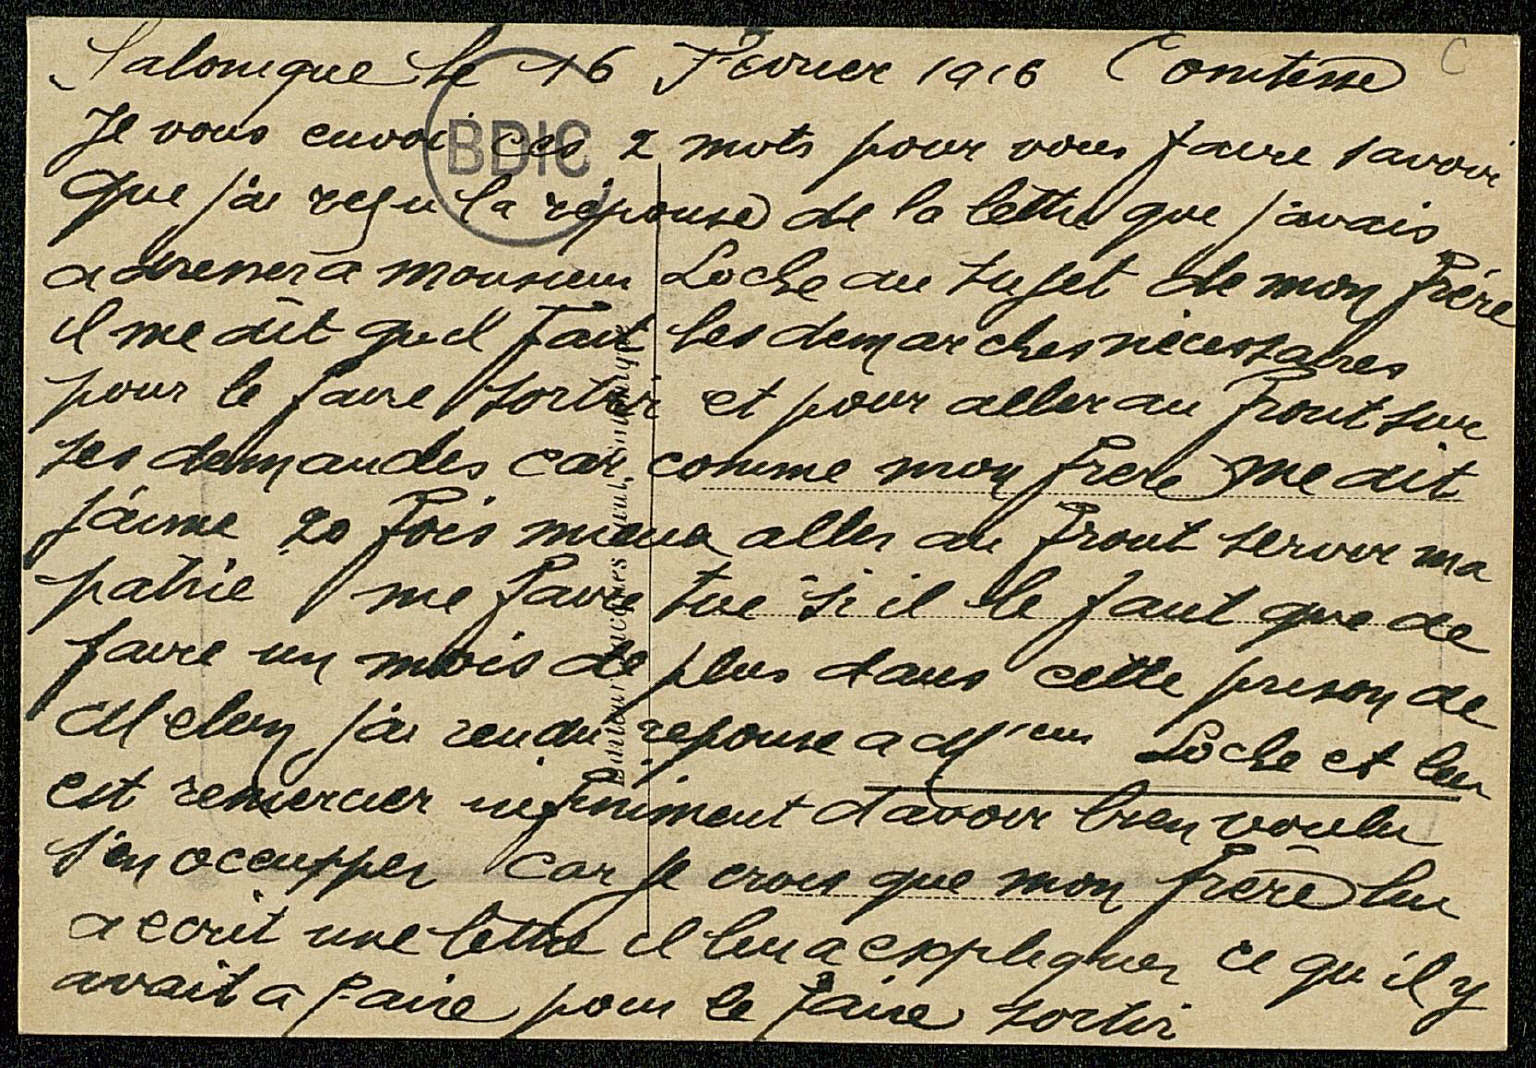 Salonique le 16 Fevrier 1916 Comtesse
Je vous envoi ces 2 mots pour vous faire savoir
que j'ai reçu la réponse de la lettre que j'avais
adresser a monsieur Loche au sujet de mon frère
il me dit quil fait les demarches nécessaires
pour le faire sortir et pour aller au front sur
ses demandes car comme mon frere me dit
j'aime 20 fois mieux aller au front servir ma
patrie me faire tué si il le faut que de
faire un mois de plus dans cette prison de
Melun j'ai rendu reponse a Mrieur Loche et leu
est remercier infiniment d'avoir bien voulu
s'en occupper car je crois que mon frère lui
a ecrit une lettre il leu a expliquer ce qu'il y
avait a faire pour le faire sortir
BDIC